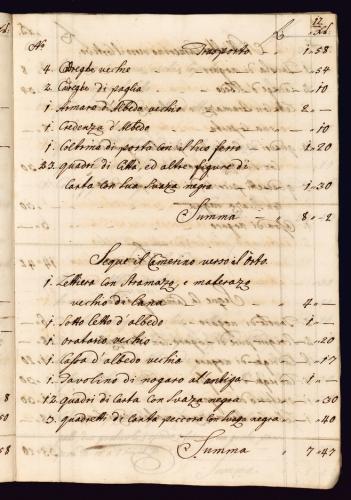 12
No Trasporto 1 58
4. Careghe vechie 54
2. Careghe di paglia 10
1. Armaro d'Albedo vechio 2 —
1. Credenza d'Albedo 10
1. Coltrina di porta con il suo ferro 1 20
23. quadri di Città, ed altre figure di
Carta con sua Suaza negra 1 30
Summa 8 2
Segue il Camerino verso l'Orto
1. Lettiera con Stramazo, e materazo
vechio di Lana 4 —
1. Sotto Letto d'albedo 1 —
1. oratorio vechio 20
1. Cassa d'albedo vechia 17
1. Tavolino di nogaro al'antiga 1 —
12. quadri di Carta con Suaza negra 30
5. quadretti di Carta peccora con Suaza negra 40
Summa 7 47
8
0
58